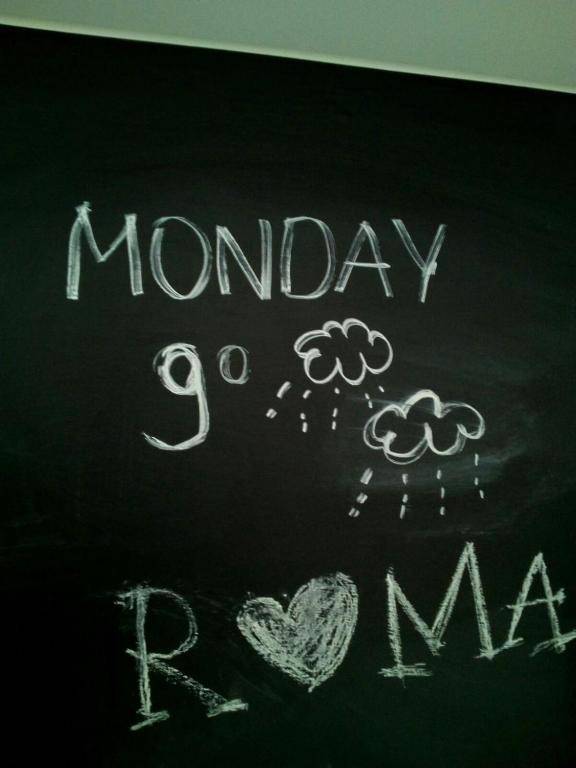 MONDAY
9°
R♥MA